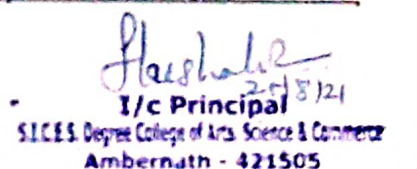 25/8/21
I/c Principal
S.I.C.E.S. Degree College of Arts, Science & Commerce
Ambernath - 421505